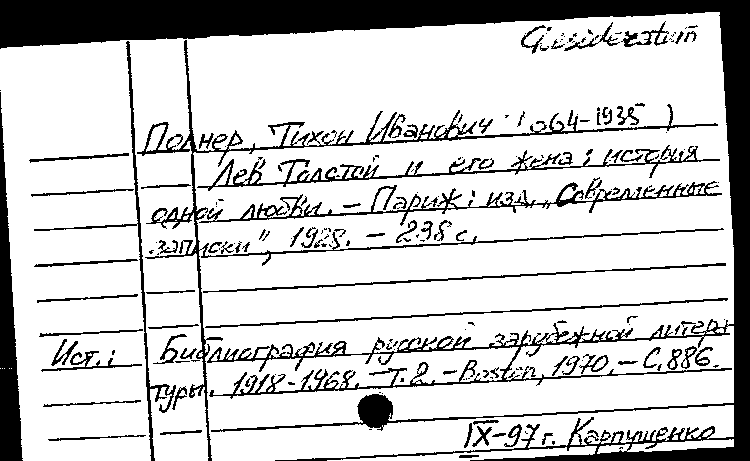 Desideratum
Полнер, Тихон Иванович (1864-1935)
Лев Толстой и его жена: история
одной любви. – Париж: изд. „Современные
записки", 1928. – 238 с.
Ист.: Библиография русской зарубежной литера-
туры. 1918-1968. – Т. 2. – Boston, 1970. – С. 886.
IX-97 г. Карпущенко